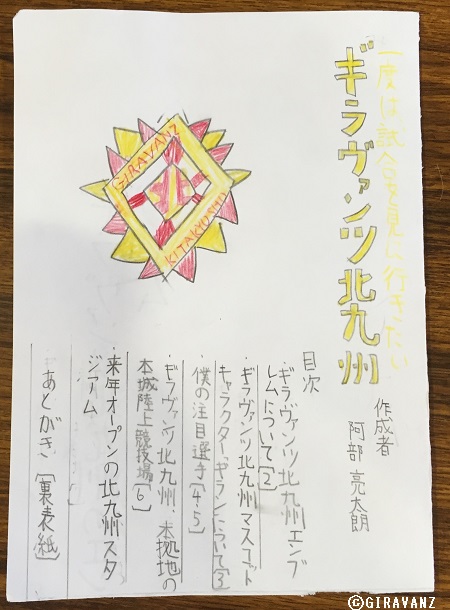 一度は試合を見に行きたい
ギラヴァンツ北九州
作成者
阿部 亮太朗
GIRAVANZ
KITAKYUSHU
目次
・ギラヴァンツ北九州エンブ
レムについて〔2〕
・ギラヴァンツ北九州マスコット
キャラクターギランについて〔3〕
・僕の注目選手〔4.5〕
・ギラヴァンツ北九州、本拠地の
本城陸上競技場〔6〕
・来年オープンの北九州スタ
ジアム
あとがき〔裏表紙〕
©GIRAVANZ